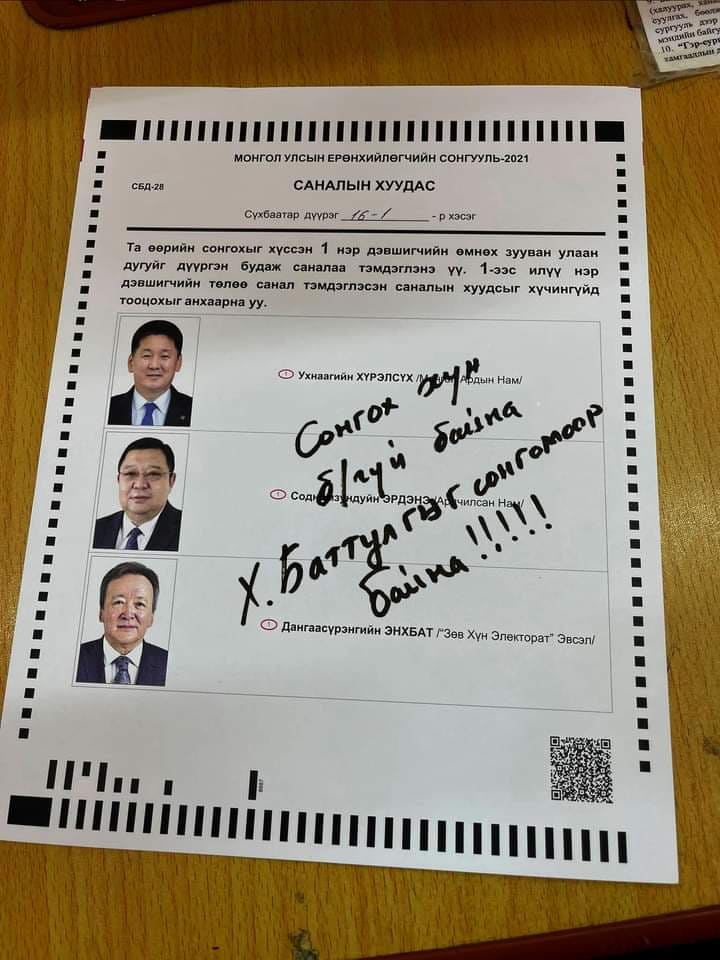 (халуурах, хана
суулгах, бөөлж
сургууль дээр
мэндийн байгу
10. "Гэр-сург
хамгааллын д
МОНГОЛ УЛСЫН ЕРӨНХИЙЛӨГЧИЙН СОНГУУЛЬ-2021
СБД-28
САНАЛЫН ХУУДАС
Сүхбаатар дүүрэг 16-1 - р хэсэг
Та өөрийн сонгохыг хүссэн 1 нэр дэвшигчийн өмнөх зууван улаан
дугуйг дүүргэн будаж саналаа тэмдэглэнэ үү. 1-ээс илүү нэр
дэвшигчийн төлөө санал тэмдэглэсэн саналын хуудсыг хүчингүйд
тооцохыг анхаарна уу.
1 Ухнаагийн ХҮРЭЛСҮХ /Монгол Ардын Нам/
Сонгох хүн
б/гүй байна
1 Содномзундуйн ЭРДЭНЭ /Ардчилсан Нам/
Х. Баттулгыг сонгомоор
байна!!!!!
1 Дангаасүрэнгийн ЭНХБАТ /"Зөв Хүн Электорат" Эвсэл/